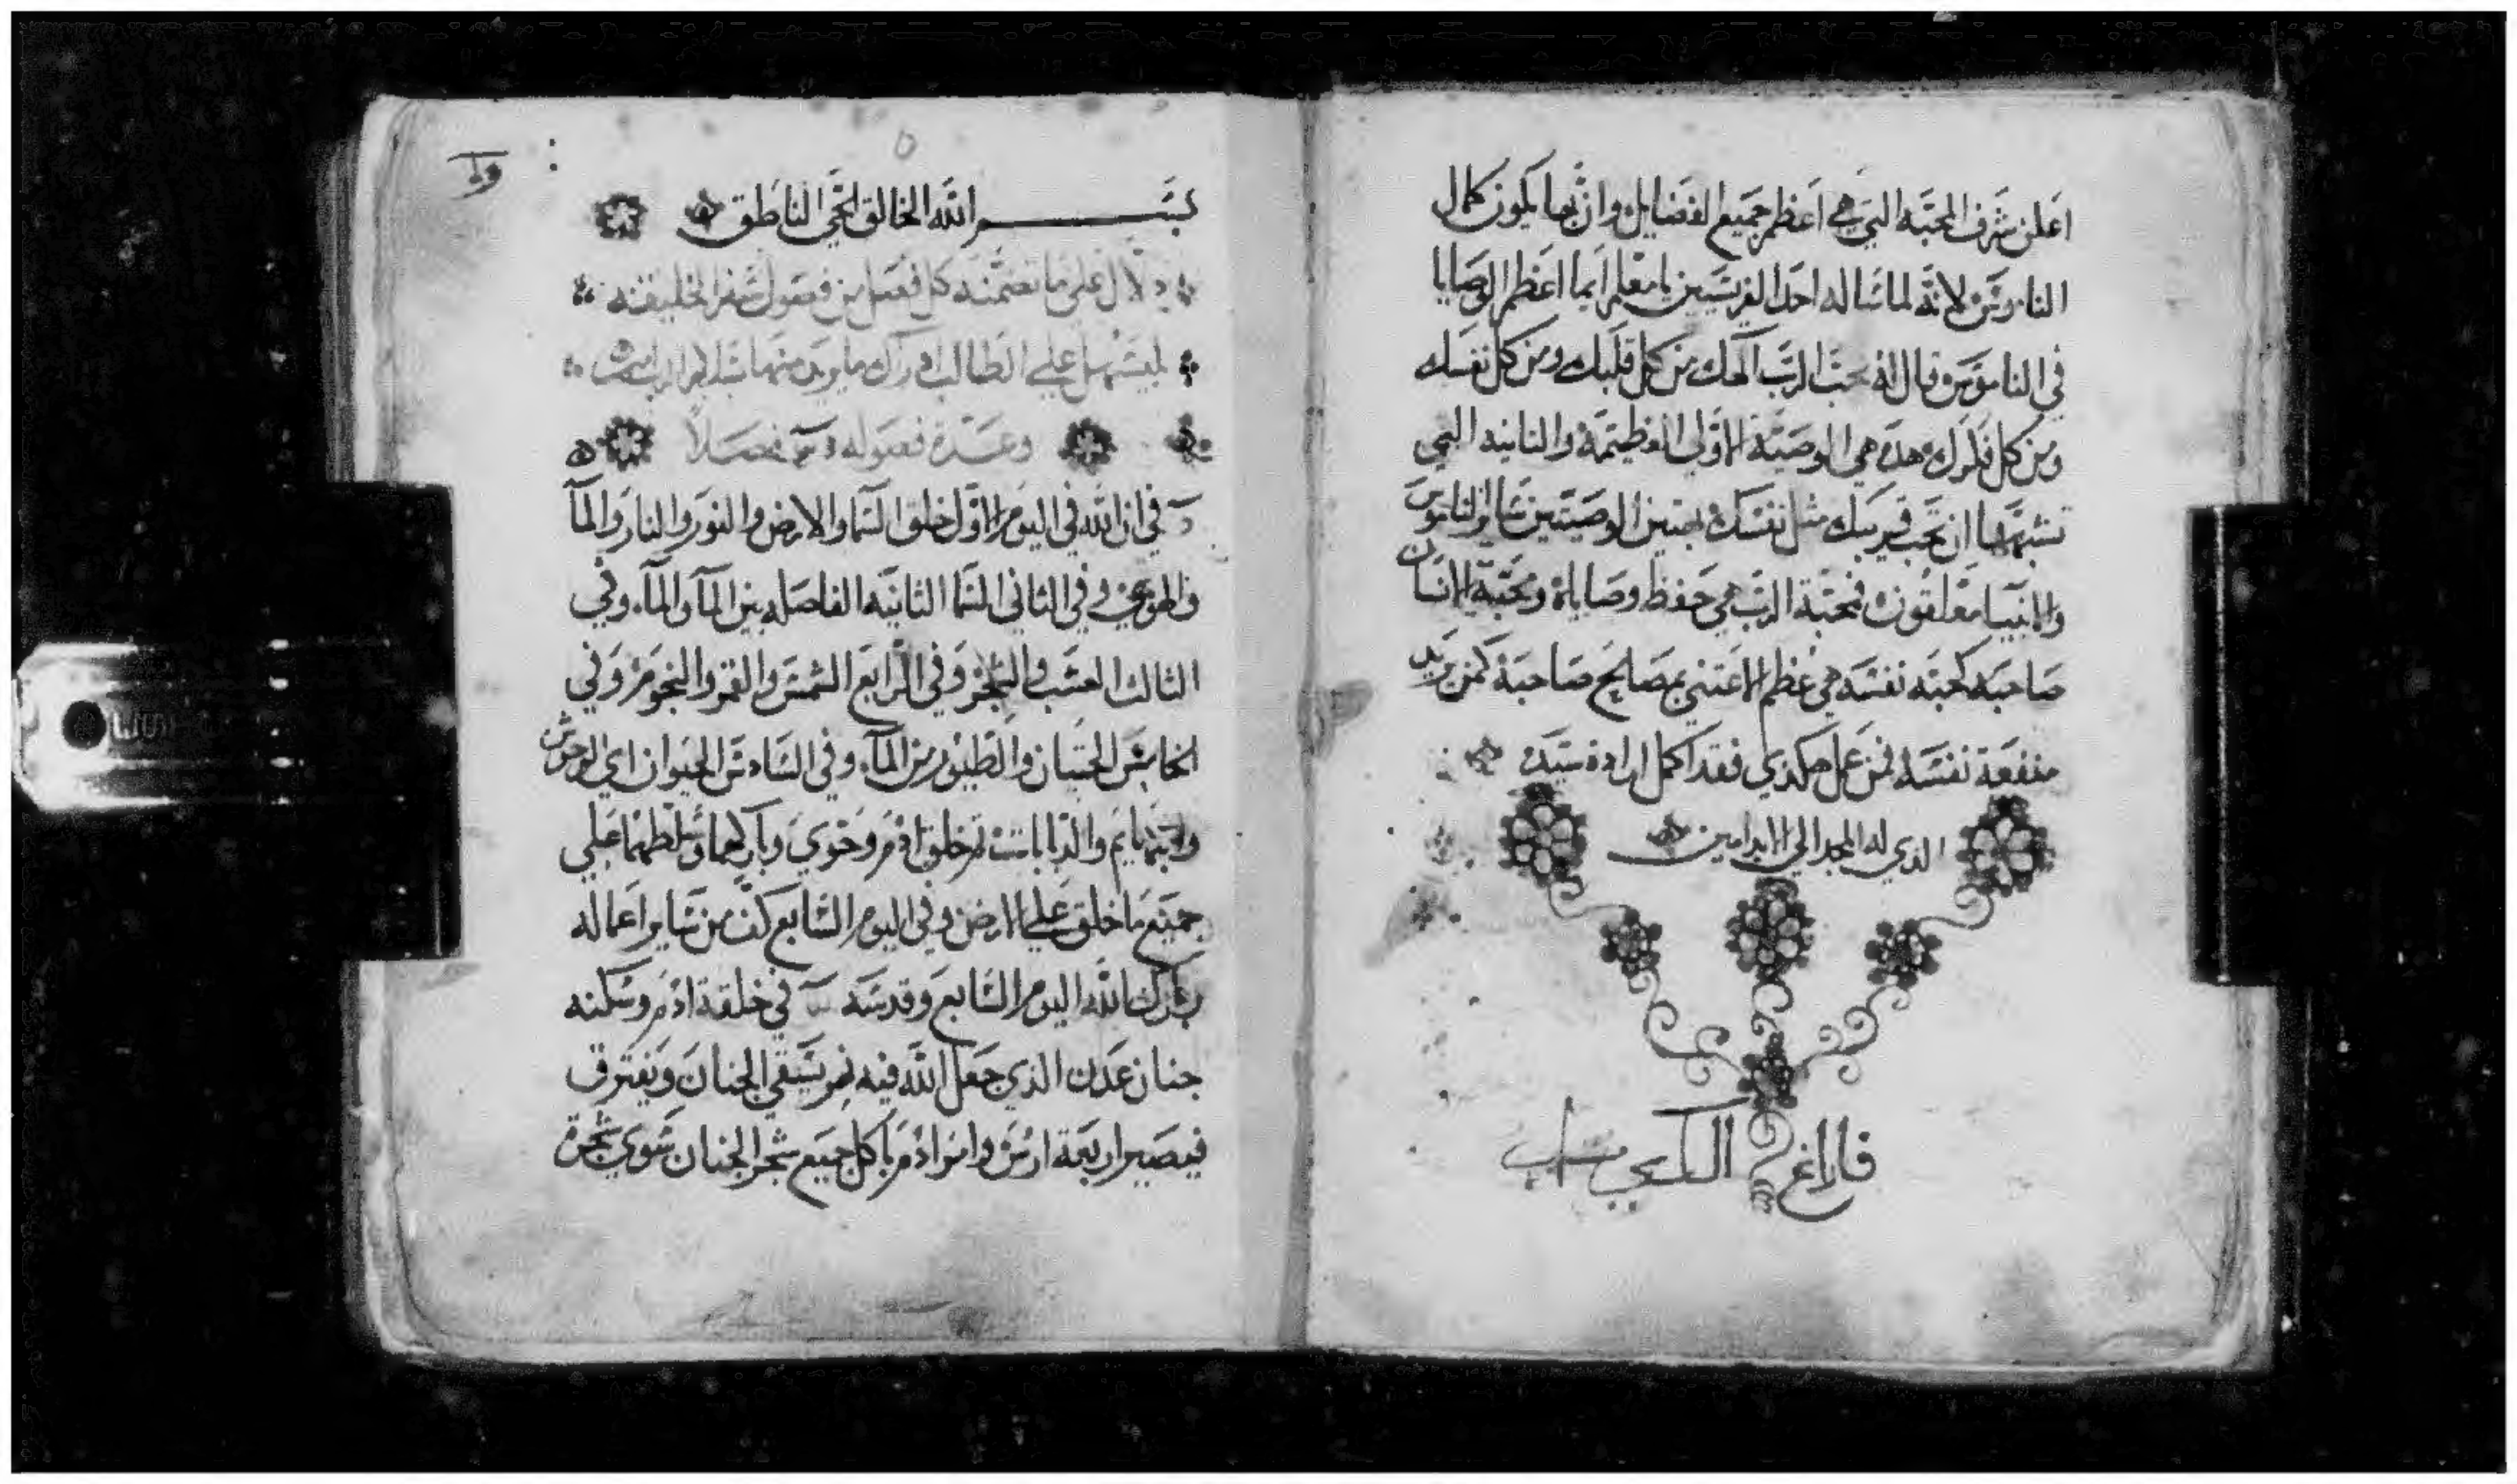 اعلن شرف المحبه التي هي اعظم جميع الفضايل وان بها يكون كمال
الناموس لانه لما ساله احد الفريسيين يا معلم ايما اعظم الوصايا
في الناموس وقال له تحب الرب الهك من كل قلبك ومن كل نفسك
ومن كل فكرك وهده هي الوصية الاولي العظيمه والتانيه التي
تشبهها ان تحب قريبك مثل نفسك بهتين الوصيتين ساير الناموس
والانبيا معلقون فمحبة الرب هي حفظ وصاياه ومحبة الانسان
صاحبه كمحبه نفسه هي عظم الاعتني بمصالح صاحبه كمن يريد
منفعة نفسه فمن عمل هكدي فقد اكمل ارادة سيده
الدي له المجد الي الابد امين
بســـم الله الخالق الحي الناطق
دلال علي ما تضمنه كل فصل من فصول سفر الخليقه
ليسهل علي الطالب ادراك ما يريد منها
وعدة فصوله فصلاً
في ان الله في اليوم الاول خلق السما والارض والنور والنار والمآ
والهوي وفي التاني السما التانيه الفاصله بين المآ والمآ وفي
التالت العشب والشجر وفي الرابع الشمس والقمر والنجوم وفي
الخامس الحيتان والطيور من المآ وفي السادس الحيوان اي الوحوش
والبهايم والدبابات تم خلق ادم وحوي وباركهما وسلطهما علي
جميع ما خلق علي الارض وفي اليوم السابع كف من ساير اعماله
وبارك الله اليوم السابع وقدسه في خلقة ادم وسكنه
جنان عدن الذي جعل الله فيه نهر يسقي الجنان ويفترق
فيصير اربعة اروس وامر ادم ياكل جميع شجر الجنان سوي شجرة